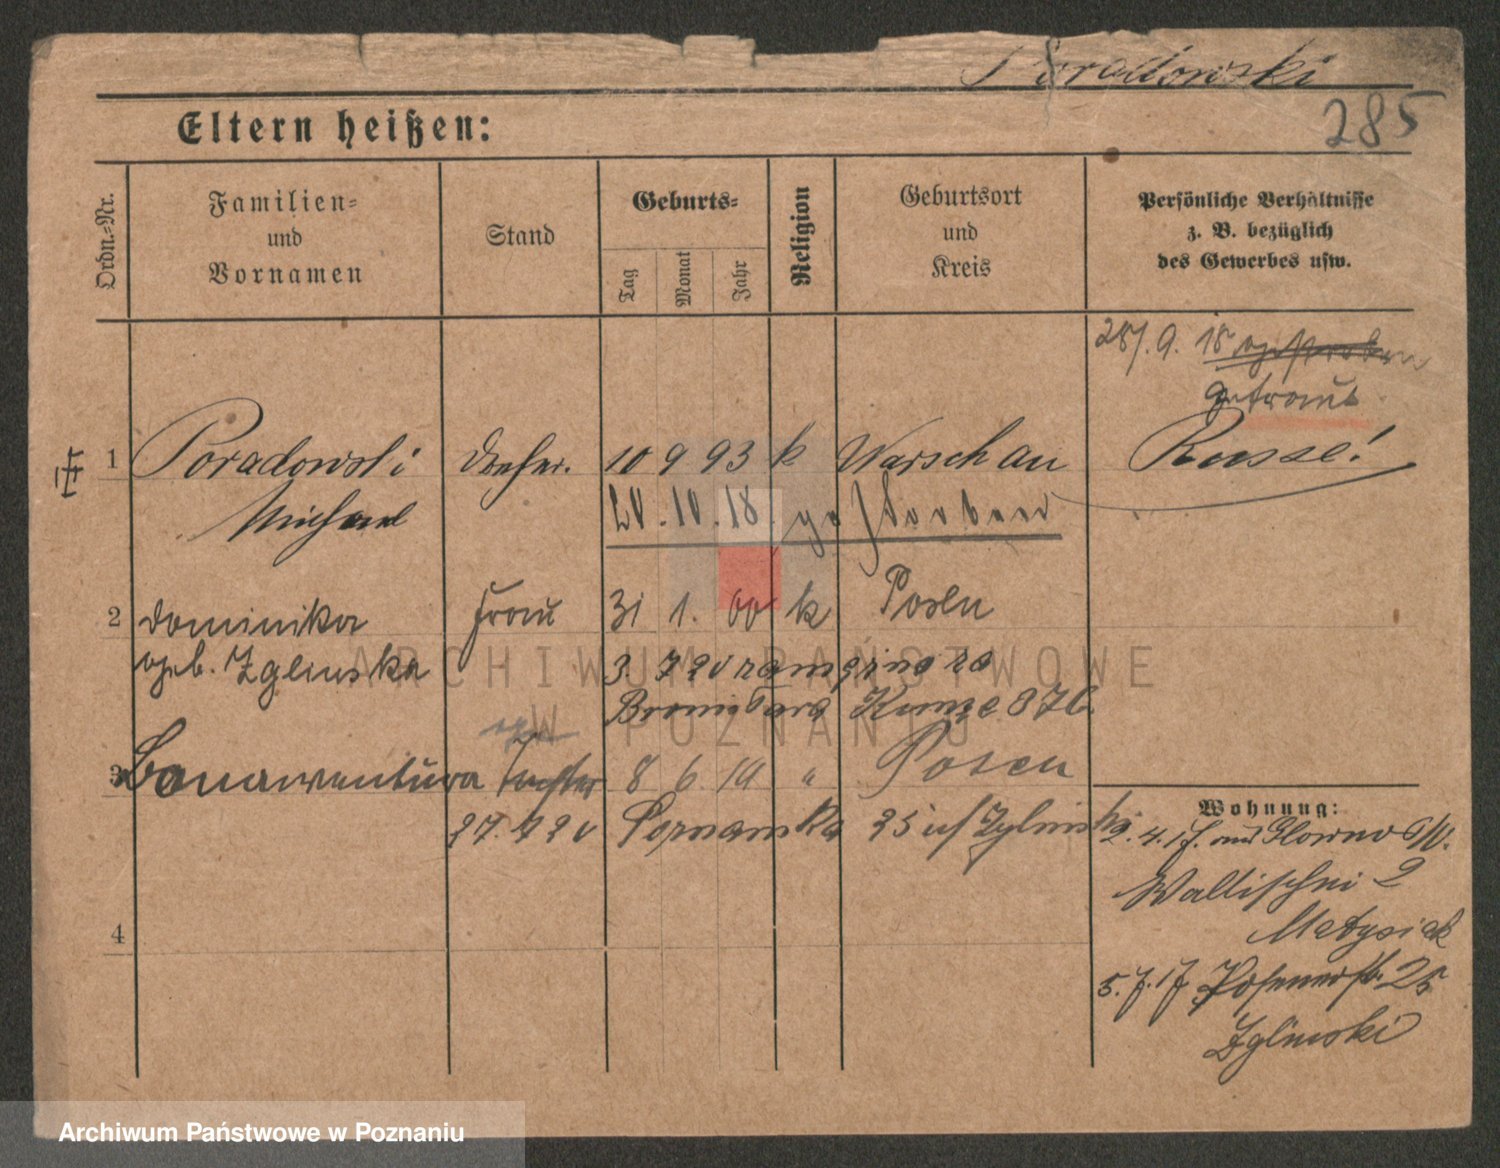 Poradowski
285
Eltern heißen:
Ordn.=Nr.
Familien=
und
Vornamen
Stand
Geburts=
Tag
Monat
Jahr
Religion
Geburtsort
und
Kreis
Persönliche Verhältnisse
z. B. bezüglich
des Gewerbes usw.
28/. 9. 18 gestorben
getraut
1 Poradowski Dreher. 10 9 93 k Warschau Russe!
Michael
20. 10. 18. gestorben
2 Dominika Frau 31 1. 00 k Posen
geb. Zglinska 3. 7 20
Kunze 876
3 Bonawentura Tochter 8 6. 19 " Posen
27. 20 25 Zglinski
Wohnung:
2. 4. 17. Glowno
Wallischei 2
Matysiak
4
5. 7. 17 Posenerstr. 25
Zglinski
ARCHIWUM PAŃSTWOWE
W POZNANIU
Archiwum Państwowe w Poznaniu